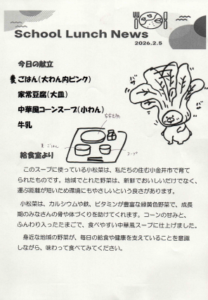 School Lunch News
2026.2.5
今日の献立
ごはん(大わん内ピンク)
家常豆腐(大皿)
中華風コーンスープ(小わん)
牛乳
給食室より
このスープに使っている小松菜は、私たちの住む小金井市で育て
られたものです。地域でとれた野菜は、新鮮でおいしいだけでなく、
運ぶ距離が短いため環境にもやさしいという良さがあります。
小松菜は、カルシウムや鉄、ビタミンが豊富な緑黄色野菜で、成長
期のみなさんの骨や体づくりを助けてくれます。コーンの甘みと、
ふんわり入ったたまごで、食べやすい中華風スープに仕上げました。
身近な地域の野菜が、毎日の給食や健康を支えていることを意識
しながら、味わって食べてみてください。